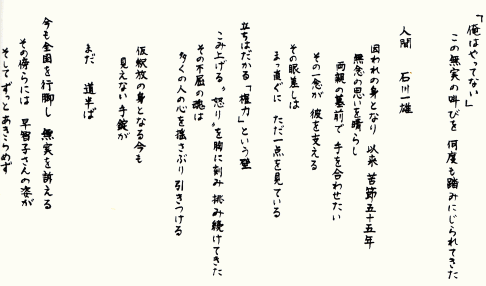 「俺はやってない」
この無実の叫びを 何度も踏みにじられてきた
人間 石川一雄
囚われの身となり 以来 苦節五十五年
無念の思いを晴らし
両親の墓前で 手を合わせたい
その一念が 彼を支える
その眼差しは
まっ直ぐに ただ一点を見ている
立ちはだかる「権力」という壁
こみ上げる“怒り”を胸に刻み 挑み続けてきた
その不屈の魂は
多くの人の心を揺さぶり 引きつける
仮釈放の身となる今も
見えない手錠が
まだ 道半ば
今も全国を行脚し 無実を訴える
その傍らには 早智子さんの姿が
そしてずっとあきらめず